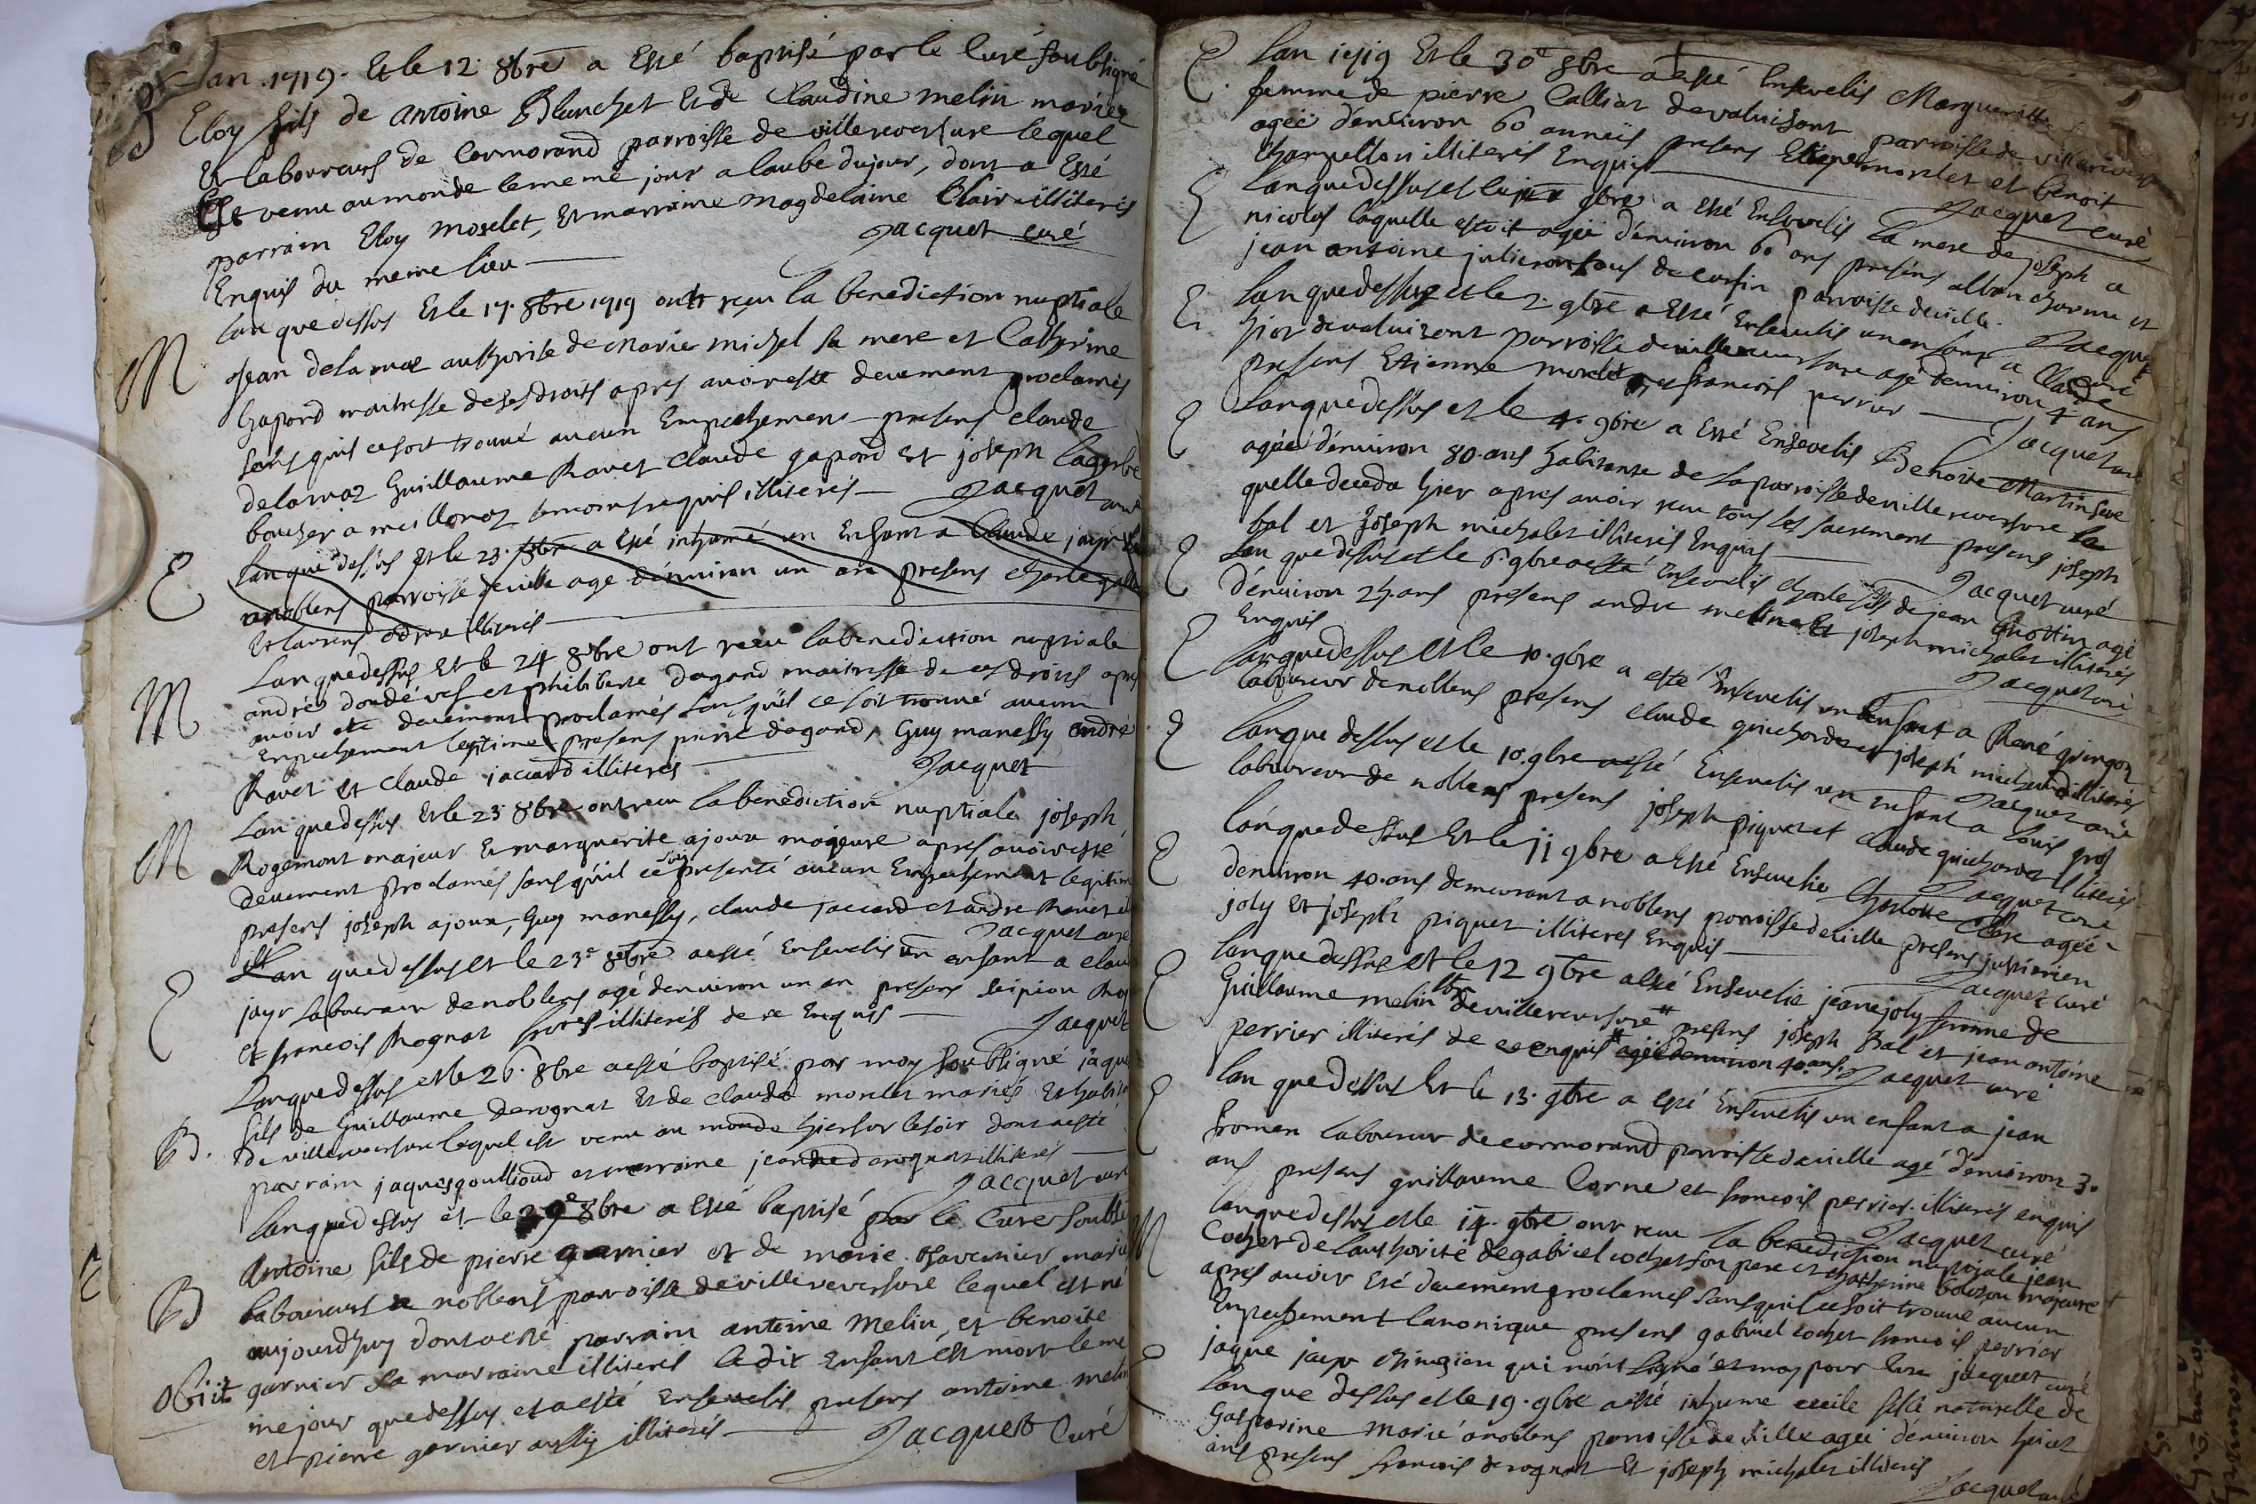 B Lan .1719. Et le 12. 8bre a Esté baptisé par le Curé soubsigné
Eloy fils de antoine Blanchet Et de Claudine melin mariez
Et laboureurs de Cormorand parroisse de villereversure lequel
Est venu au monde le meme jour a laube du jour, dont a Esté
parrain Eloy Moselet, Et marraine magdelaine Clair illiteris
Enquis du meme lieu
Jacquet curé
M Lan que dessus Et le 17. 8bre 1719 ont reçu la benediction nuptiale
Jean delamaz authorité de Marie michel sa mere et Catherine
gapord maitresse de ses droits apres avoir esté deuement proclamés
sans quil ce soit trouvé aucun Empechement presens claude
delamaz Guillaume Ravet claude gapord Et joseph
boucher a meillonaz temoins requis illiteris
Jacquet curé
E Lan que dessus Et le 23. 8bre a Esté inhumé un Enfant a Claude jayr
noblens parroisse deville agé d'environ un an presens
Et laurens illiteris
M Lan que dessus Et le 24 8bre ont receu la benediction nuptiale
andré et philiberte dagand maitresse de ces droits apres
avoir ete deuement proclamés sans quil ce soit trouvé aucun
Empechement legitime presens pierre dagand, Guy manessy andré
Ravet Et Claude jaccard illiteres
Jacquet
M Lan que dessus Et le 23 8bre ont receu la benediction nuptiale joseph
Rogemont majeur Et marguerite ajoux majeure apres avoir esté
deuement proclamés sans quil ce soit presenté aucun Empechement legitime
presens joseph ajoux, Guy manessy, claude jaccard et andre Ravet
Jacquet curé
E Lan que dessus et le 23e 8bre a esté Ensevelis un enfant a claude
jayr laboureur de noblens agé denviron un an presens scipion
Et francois Rognat freres illiteris de ce Enquis
Jacquet
B. Lan que dessus et le 26. 8bre a esté baptisé par moy soubsigné jaque
fils de Guillaume derognat Et de claudå monlet mariés Et
de villereversure lequel est venu au monde hier sur le soir dont a esté
parrain jaques goulliond et marraine jeanne derognat illiteres
Jacquet curé
B Lan que dessus et le 29e 8bre a Esté baptisé par le Curé
Antoine fils de pierre garnier et de marie mariés
laboureurs a noblens parroisse de villereversure lequel est né
aujourdhuy dont a esté parrain antoine Melin, et benoite
Obiit garnier sa marraine illiteris le dit Enfant Est mort le me
me jour que dessus et a esté Ensevelis presens antoine melin
et pierre garnier aussy illiteris
Jacquet Curé
E. Lan 1719 Et le 30e 8bre a esté Ensevelis Marguerite
femme de pierre Calliat devaluisant parroisse de
agée denviron 60 années presens Etiene monlet et benoit
Charnellon illiteris Enquis
Jacquet curé
E Lan que dessus et le 9bre a esté Ensevelis la mere de joseph a
nicolas laquelle estoit agée d'environ 60 ans presens alban charme et
jean antoine de parroisse deville.
Jacquet curé
E Lan que dessus et le 2. 9bre a Esté Ensevelis un enfant a Claude
devaluisant parroisse de villereversure agé denviron 4 ans
presens Etienne monlet et francois perrier
Jacquet curé
E Lan que dessus et le 4. 9bre a esté Ensevelis Benoite Martin
agée d'environ 80. ans habitante de la parroisse de villereversure la
quelle deceda hier apres avoir receu tous les sacrement presens joseph
bal et joseph michalet illiteris Enquis
Jacquet curé
E Lan que dessus et le 6. 9bre a esté Ensevelis charle fils de jean agé
d'environ 25. ans presens andre melin Et joseph michalet illiteris
Enquis
Jacquet curé
E Lan que dessus Et le 10. 9bre a esté Ensevelis un Enfant a René gringoz
laboureur de noblens presens claude guichardet et joseph illiteris
Jacquet curé
E Lan que dessus et le 10. 9bre a esté Ensevelis un Enfant a louis gros
laboureur de noblens presens joseph piquet et claude guichardet illiteris
Jacquet curé
E Lan que dessus Et le 11 9bre a Esté Ensevelie Charlotte agée
denviron 40. ans demeurant a noblens parroisse deville presens
joly Et joseph piquet illiteres Enquis
Jacquet curé
E Lan que dessus Et le 12 9bre a Esté Ensevelie jeane joly femme de
Guillaume melin de villereversure # presens joseph Bal et jean antoine
perrier illiteris de ce enquis # agée denviron 40. ans.
Jacquet curé
E Lan que dessus Et le 13. 9bre a esté Ensevelis un enfant a jean
froman laboureur de cormorand parroisse deville agé denviron 3.
ans presens guillaume Carne et francois perrier. illiteris enquis
Jacquet curé
M Lan que dessus et le 14. 9bre ont receu la benediction nuptiale jean
Cochet de lauthorité de gabriel cochet son pere et catherine majeure
apres avoir Esté deuement proclames sans quil ce soit trouve aucun
Empechement Canonique presens gabriel cochet francois perrier
jaque jayr chirugien qui n'ont signé et moy pour curé jacquet curé
E Lan que dessus et le 19. 9bre a esté inhume cecile fille naturelle de
Gasparine Marié a noblens parroisse de Ville agée d'environ huict
ans presens francois derognat Et joseph michalet illiteris
Jacquet curé